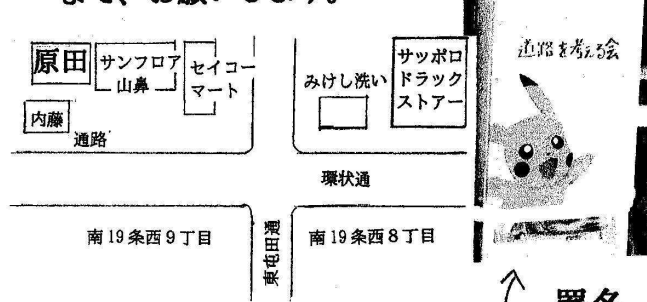 まで、お願いします。
道路を考える会
原田
サンフロア
山鼻
セイコー
マート
みけし洗い
サッポロ
ドラック
ストアー
内藤
通路
環状通
南19条西9丁目
東屯田通
南19条西8丁目
署名